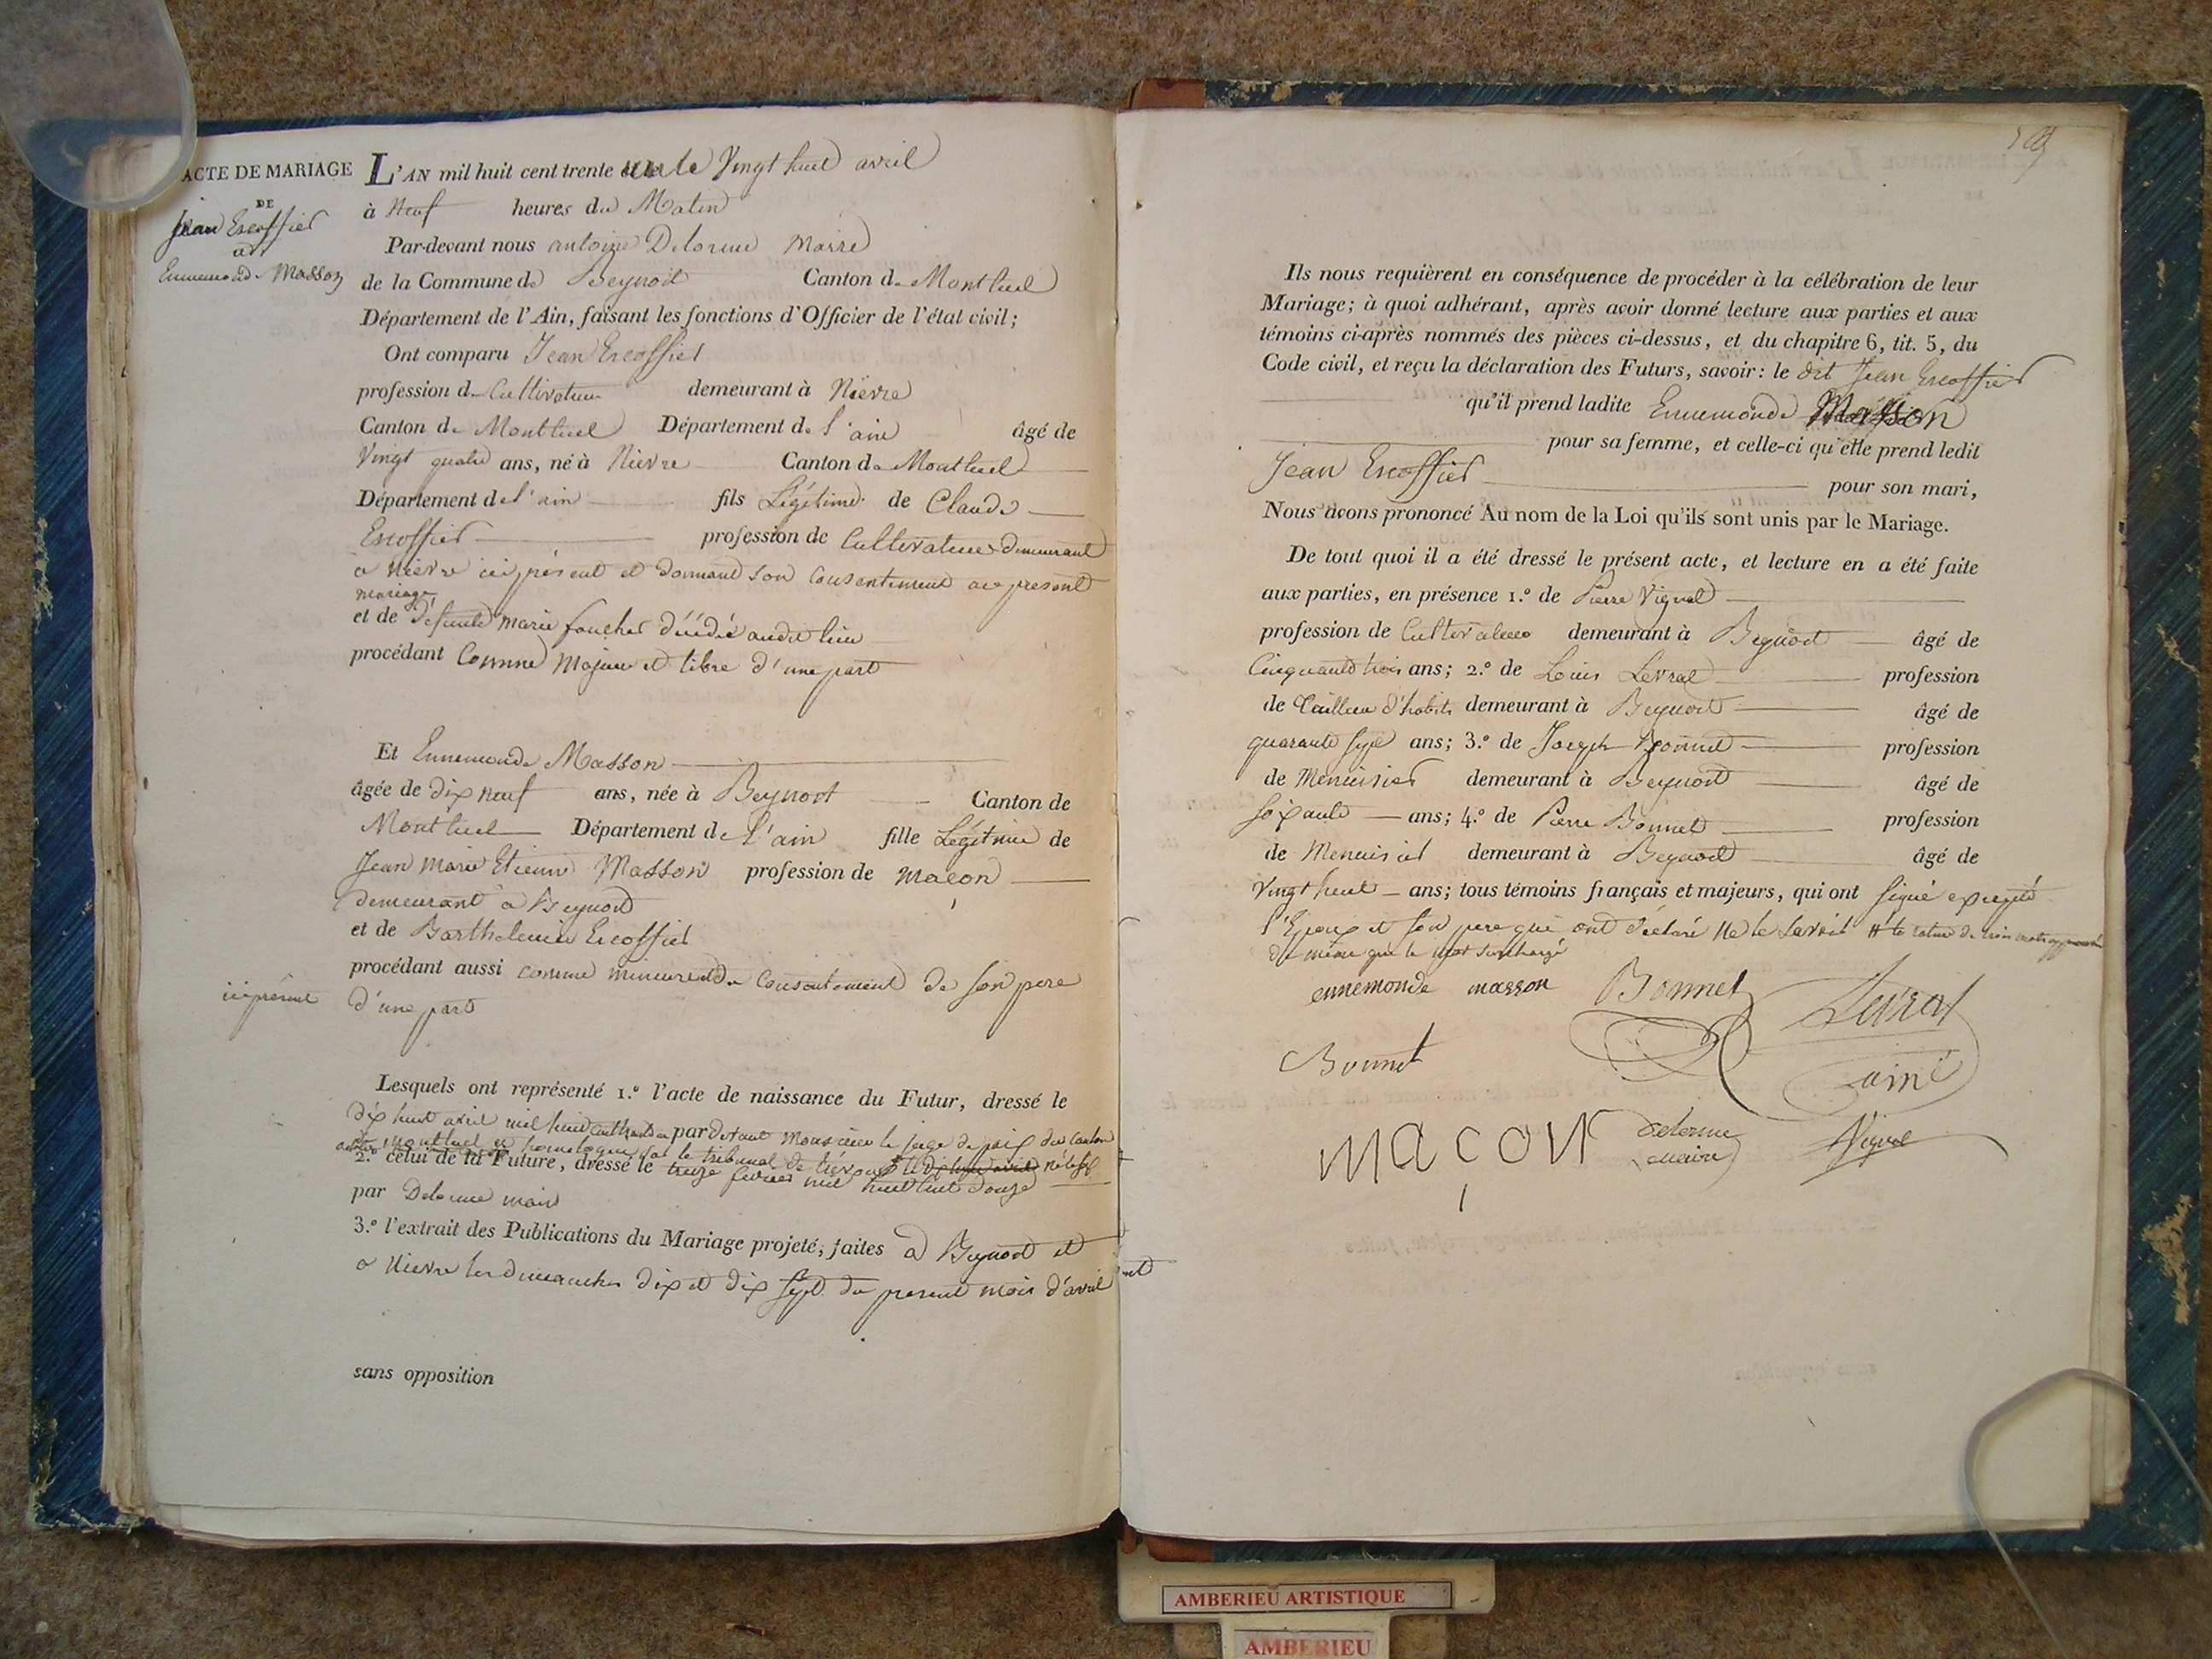 ACTE DE MARIAGE
DE
Jean Escoffier
à
Ennemonde Masson
L'AN mil huit cent trente un le Vingt huit avril
à Neuf heures du Matin
Par-devant nous antoine Delorme Maire
de la Commune de Beynost Canton de Montluel
Département de l'Ain, faisant les fonctions d'Officier de l'état civil;
Ont comparu Jean Escoffier
profession de Cultivateur demeurant à Nievre
Canton de Montluel Département de l'ain âgé de
Vingt quatre ans, né à Nievre Canton de Montluel
Département de l'ain fils Légitime de Claude
Escoffier profession de Cultivateur demeurant
a Nievre ici présent et donnant son Consentement au present
mariage
et de défunte Marie foucher décédée audit lieu
procédant Comme Majeur et libre d'une part
Et Ennemonde Masson
âgée de dix neuf ans, née à Beynost Canton de
Montluel Département de l'ain fille Légitime de
Jean Marie Etienne Masson profession de Maçon
demeurant à Beynost
et de Barthelemie Escoffier
procédant aussi comme mineure et du Consentement de son pere
ici présent
d'une part
Lesquels ont représenté 1.º l'acte de naissance du Futur, dressé le
dix huit avril mil huit cent trente un par devant Monsieur le juge de paix du Canton
de montluel et homologué par le tribunal de trévoux le
2.º celui de la Future, dressé le treize fevrier mil huit cent douze
par Delorme maire
3.º l'extrait des Publications du Mariage projeté, faites a Beynost et
a Nievre les dimanches dix et dix sept du present mois d'avril
sans opposition
Ils nous requièrent en conséquence de procéder à la célébration de leur
Mariage; à quoi adhérant, après avoir donné lecture aux parties et aux
témoins ci-après nommés des pièces ci-dessus, et du chapitre 6, tit. 5, du
Code civil, et reçu la déclaration des Futurs, savoir: le dit Jean Escoffier
qu'il prend ladite Ennemonde Masson
pour sa femme, et celle-ci qu'elle prend ledit
Jean Escoffier pour son mari,
Nous avons prononcé Au nom de la Loi qu'ils sont unis par le Mariage.
De tout quoi il a été dressé le présent acte, et lecture en a été faite
aux parties, en présence 1.º de Pierre Vignal
profession de Cultivateur demeurant à Beynost âgé de
Cinquante trois ans; 2.º de Louis Levrat profession
de Tailleur d'habits demeurant à Beynost âgé de
quarante sept ans; 3.º de Joseph Bonnet profession
de Menuisier demeurant à Beynost âgé de
soixante ans; 4.º de Pierre Bonnet profession
de Menuisier demeurant à Beynost âgé de
Vingt huit ans; tous témoins français et majeurs, qui ont signé excepté
l'Epoux et son pere qui ont déclaré ne le savoir # la rature de trois mots approuvée
de même que le mot surchargé
ennemonde masson Bonnet Levrat
ainé
Bonnet
maçon Delorme
maire
Vignal
AMBERIEU ARTISTIQUE
AMBERIEU